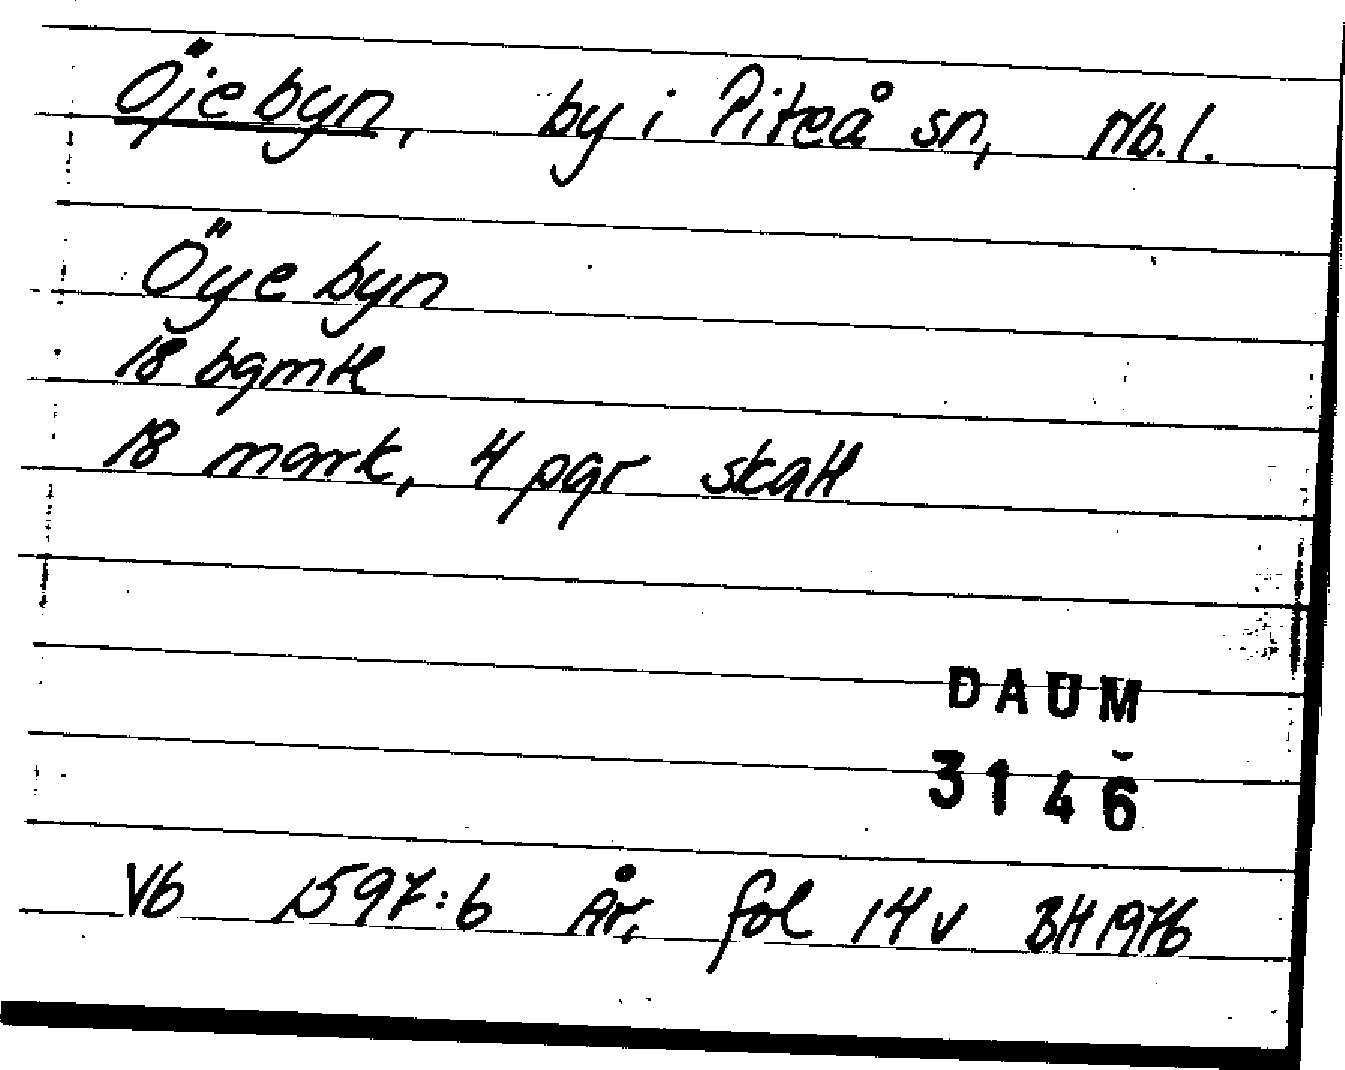 Öjebyn, by i Piteå sn, Nb.l.
Öye byn
18 bgmtl
18 mark, 4 pgr skatt
DAUM
3146
Vb 1597:6 År, fol 14v BH 1976